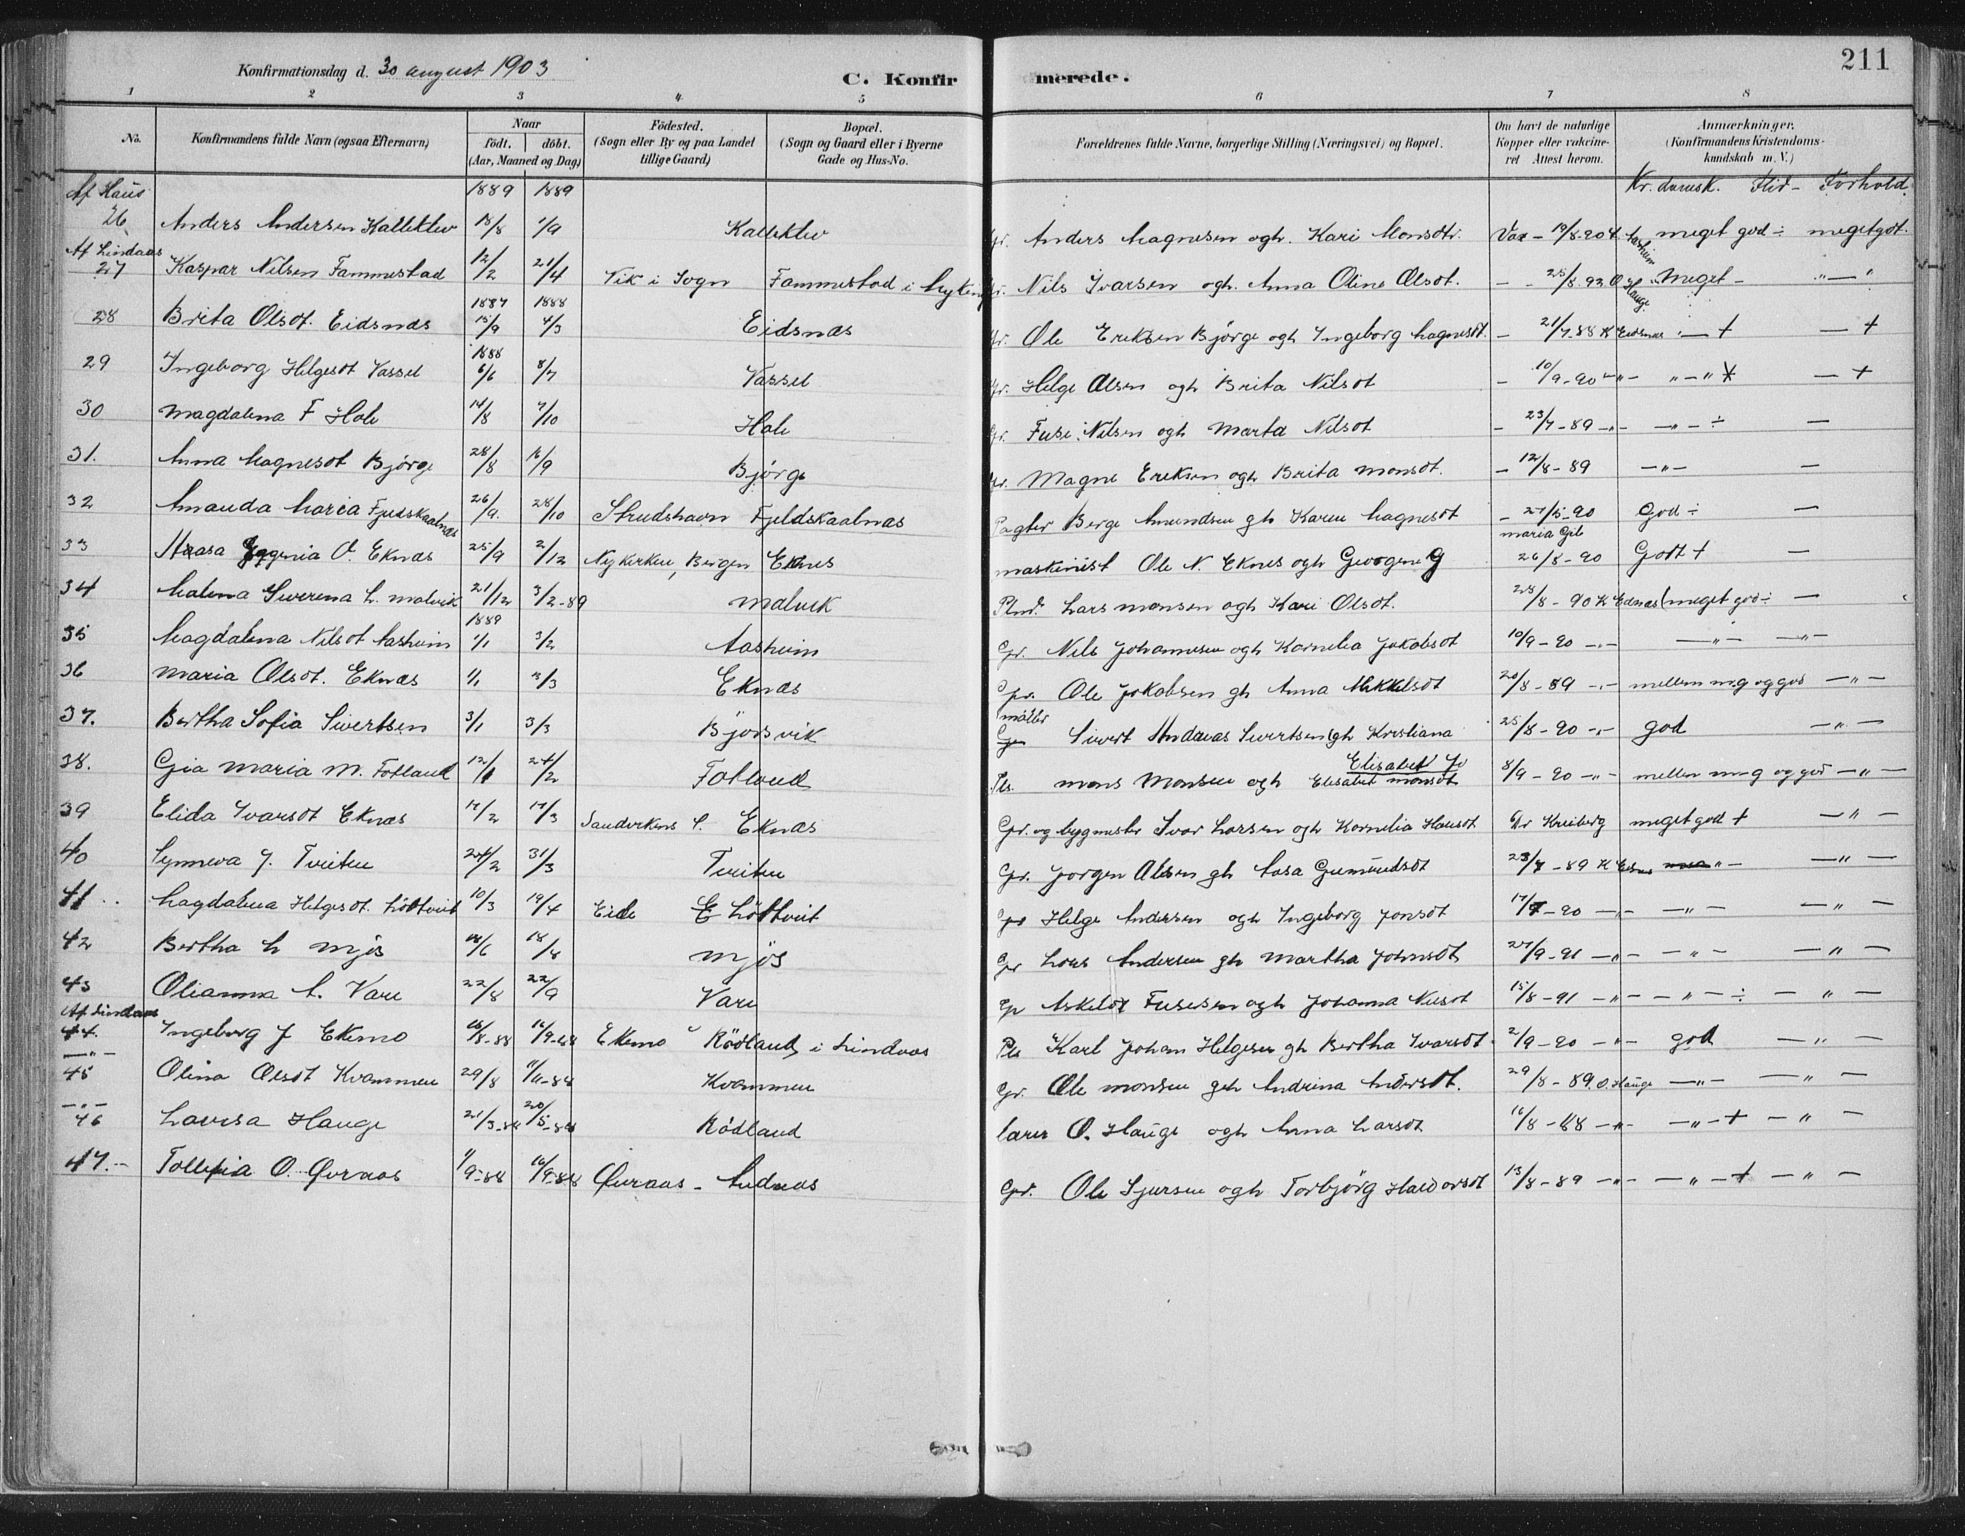 Konfirmationsdag d. 30 august 1903
C. Konfirmerede.
211
1 2 3 4 5 6 7 8
No.
Konfirmandens fulde Navn (ogsaa Efternavn)
Naar
födt. döbt.
(Aar, Maaned og Dag)
Födested.
(Sogn eller By og paa Landet
tillige Gaard)
Bopæl.
(Sogn og Gaard eller i Byerne
Gade og Hus-No.
Forældrenes fulde Navne, borgerlige Stilling (Næringsvei) og Bopæl.
Om havt de naturlige
Kopper eller vakcineret
Attest herom.
Anmærkninger.
(Konfirmandens Kristendomskundskab
m. V.)
Af Haus 1889 1889 Kr. damsk. Flid - Forhold
26 Anders Andersen Kallektev 18/8 1/9 Kallektev Gr. Anders Magnesen ogh. Kari Monsdtr. Vax - 19/8-90 meget god ÷ meget got.
Af Lindaas
27 Kaspar Nilsen Fammestad 12/2 21/4 Vik i Sogn Fammestad i Myking Gr. Nils Ivarsen ogh. Anna Oline Olsdt. - - 25/8.93. O Hauge Meget - " — "
1887 1888
28 Brita Olsdt. Eidsnæs 15/9 4/3 Eidsnæs Gr. Ole Eriksen Bjørge ogh Ingeborg Magnesdt. - 21/7-88 K Eidsnæs " — + — +
1888
29 Ingeborg Helgesdt Vassel 6/6 8/7 Vassel Gr. Helge Olsen ogh Brita Nilsdt - 10/9-90 -"- " - " — +
30 Magdalena F Hole 14/8 7/10 Hole Gr. Fuse Nilsen ogh Marta Nilsdt - 23/7-89 -"- -"- ÷ —
31. Anna Magnesdt Bjørge 28/8 16/9 Bjørge Gr. Magne Eriksen ogh Brita Monsdt. - 12/8-89 -"- —
32 Amanda Maria Fjeldskaalnæs 26/9. 28/10 Strudshavn Fjeldskaalnæs Pagter Berge Amundsen gh Karen Magnesdt - 27/5-90 God ÷ —
maria Gib
33 Eugenia O. Eknæs 25/9 2/12 Nykirken, Bergen Eknes maskinist Ole N. Eknes ogh Georgine G 26/8-90 Godt + —
34 Malena Severena L. Malvik 21/12 3/2-89 Malvik Plmd. Lars Monsen ogh Kari Olsdt. 28/8-90 K Eidnæs meget god ÷ —
1889
35 Magdalena Nilsdt Aasheim 1/1 3/2 Aasheim Gr. Nils Johannesen ogh Kornelia Jakobsdt 10/9-90 -"- —"— —"—
36 Maria Olsdt. Eknæs 1/1 3/3 Eknæs Gr. Ole Jakobsen gh Anna Mikkelsdt 20/8-89 -"- mellem mg og god —"—
37. Bertha Sofia Sivertsen 3/1 3/3 Bjørsvik møller Sivert Andreas Sivertsen gh Kristiana 25/8-90 -"- god —"—
38. Gia Maria M. Fotland 12/1 24/2 Fotland Pls. Mons Monsen ogh Elisabet Monsdt Elisabet Jo 8/9-90 -"- mellem mg og god —"—
39 Elida Ivarsdt Eknæs 17/2 17/3 Sandvikens S. Eknæs Gr. og bygmester Ivar Larsen ogh Kornelia Hansdt Dr Kreiberg meget god + —"—
40 Synneva J. Tveiten 24/2 31/3 Tveiten Gr. Jørgen Olsen gh Aasa Gumundsdt 23/7-89 K -"- —"—
41 Magdalena Helgesdt. Løtveit 10/3 19/4 Eide Løtveit Gr Helge Andersen ogh Ingeborg Jonsdt 17/9-90 -"- -"- —"—
42 Bertha L Mjøs 14/6 18/8 Mjøs Gr Lars Andersen gh Martha Johnsdt 27/9-91 -"- -"- —"—
43 Olianna A. Vare 22/8 22/9 Vare Gr Askild Fusesen ogh Johanna Nilsdt 15/8-91 -"- -"- ÷ —"—
Af Lindaas
44. Ingeborg J Ekemo 16/8-88 16/9-88 Ekemo Rödland i Lindaas Pls Karl Johan Helgesen gh Bertha Ivarsdt 2/9-90 -"- god —"—
—"—
45 Olina Olsdt Kvammen 29/8 11/11-88 Kvammen Gr. Ole Monsen gh Andrina Andersdt. 29/8-89. O. Hauge -"- —"—
—"—
46 Lovisa Hauge 21/3-88 20/5-88 Rödland lærer O. Hauge ogh Anna Larsdt 16/8-88 -"- -"- + —"—
47.- Tollefia O. Qvraas 1/9-88 16/9-88 Qvraas - Gr. Ole Sjursen ogh Torbjörg Haldorsdt 13/8-89 -"- -"- + —"—